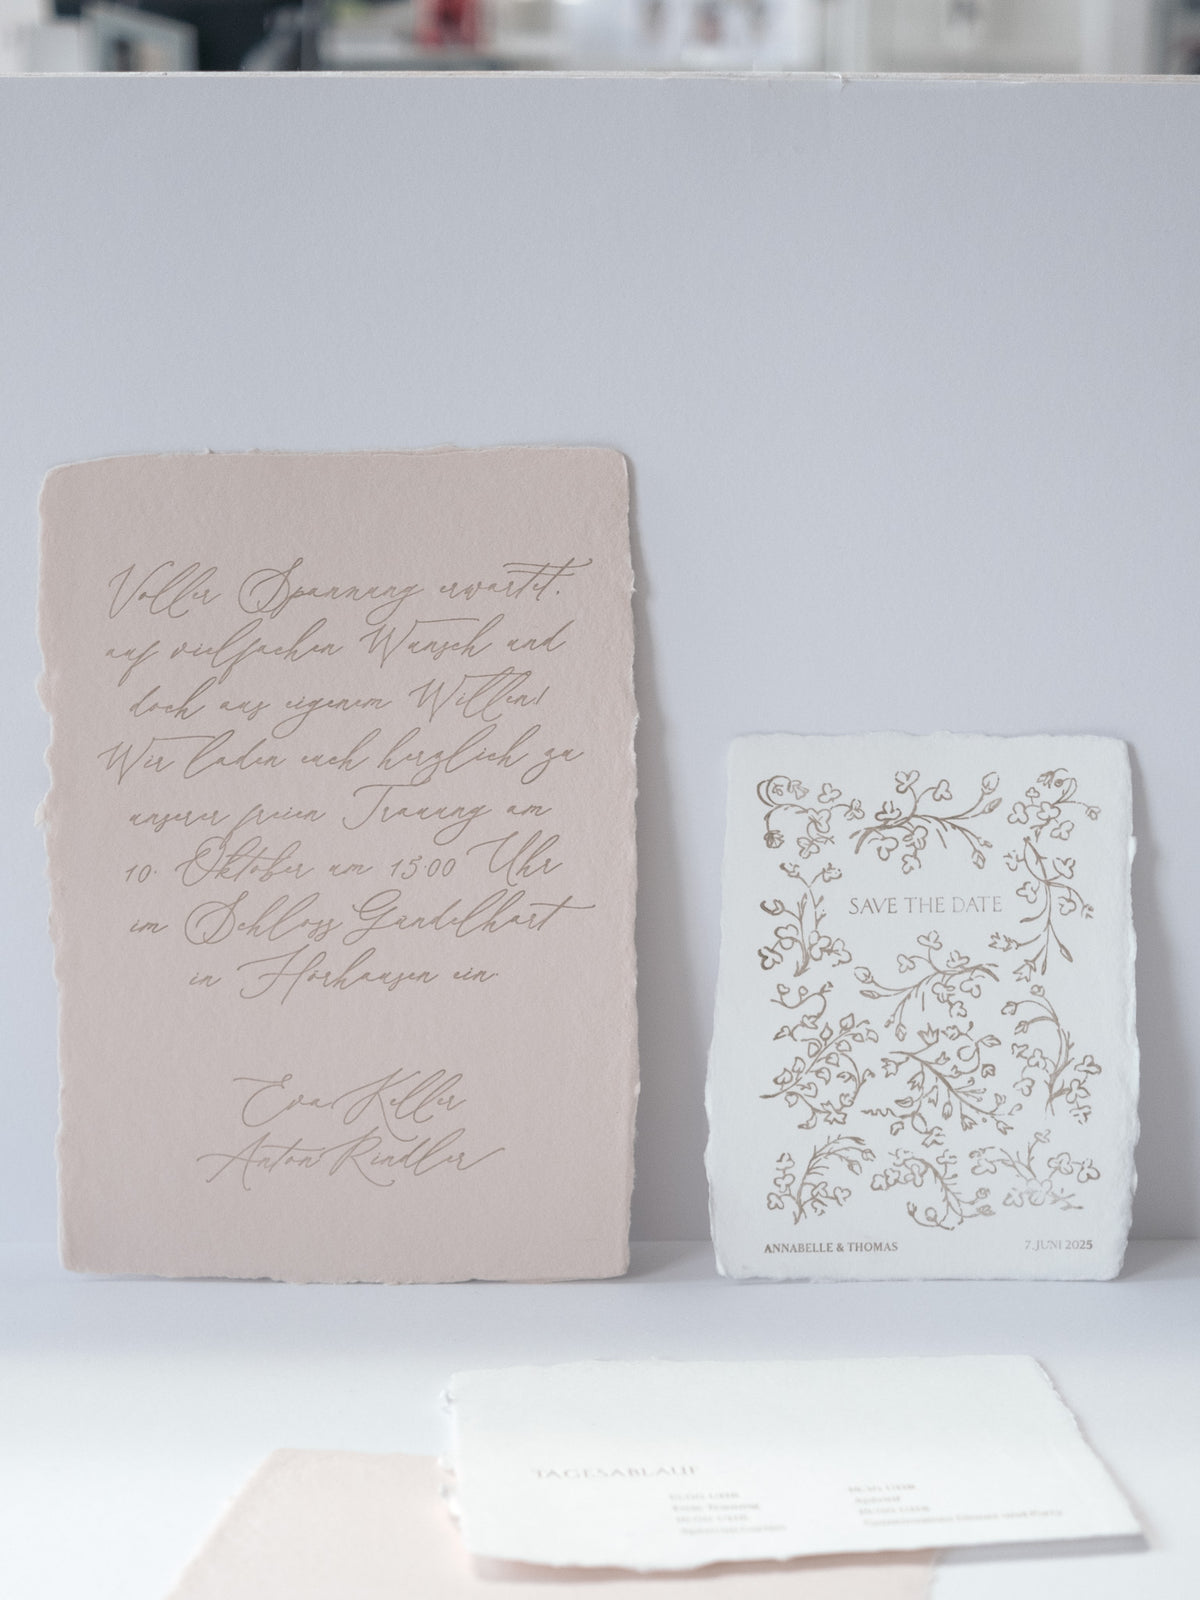 Voller Spannung erwartet,
auf vielfachen Wunsch und
doch aus eigenem Willen!
Wir laden euch herzlich zu
unserer freien Trauung am
10. Oktober um 15:00 Uhr
im Schloss Gündelhart
in Hörhausen ein.
Eva Keller
Anton Rindler
SAVE THE DATE
ANNABELLE & THOMAS
7. JUNI 2025
TAGESABLAUF